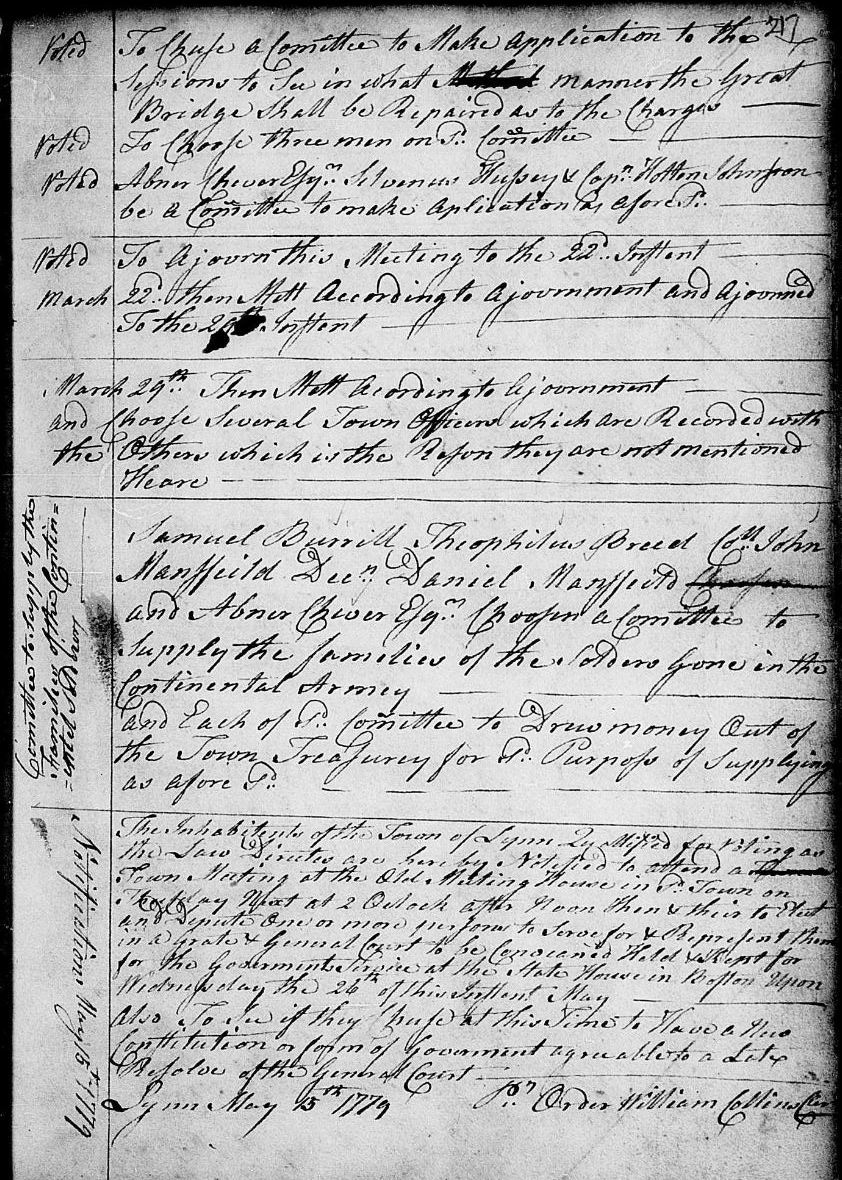 217
Voted To Chuse a Comittee to Make Application to the
Sessions to See in what manner the Great
Bridge Shall be Repaired as to the Charges
Voted To Choose three men on Sd. Comittee
Voted Abner Chever Esqr. Selvenus Hussey & Capn. Holton Johnson
be a Comittee to make Aplication as afore Sd.
Voted To Ajoorn this Meeting to the 22d. Instent
March 22d. then Mett According to Ajoornment and Ajoorned
To the 29th. Instent
March 29th. Then Mett Acording to Ajoornment
and Choose Several Town Officers which are Recorded with
the Others which is the Reson they are not mentioned
Heare
Comittee to Supply the
families of the Contin=
ental Soldiers
Samuel Burrill Theophilus Breed Coll. John
Mansfeild Decn. Daniel Mansfeild Choosen
and Abner Chever Esqr. Choosen a Comittee to
Supply the families of the Solders Gone in the
Continental Armey
and Each of Sd. Comittee to Drew money Out of
the Town Treasurey for Sd. Purposs of Supplying
as afore Sd.
Notification May 15th 1779
The Inhabitents of the Town of Lynn Qualified for Voting as
the Law Directs are here by Notified to attend a
Town Meeting at the Old Meeting House in Sd. Town on
day Next at 2 Oclock after Noon then & their to Elect
and Depute One or more persons to Serve for & Represent them
in a grate & General Court to be Conveaned Held & Kept for
for the Goverment Service at the State House in Boston Upon
Wednesday the 26th of this Instant May
Also To See if they Chuse at this Time to Have a New
Constitution or form of Goverment agreable to a Late
Resolve of the General Court
Lynn May 15th 1779 Pr. Order William Collins